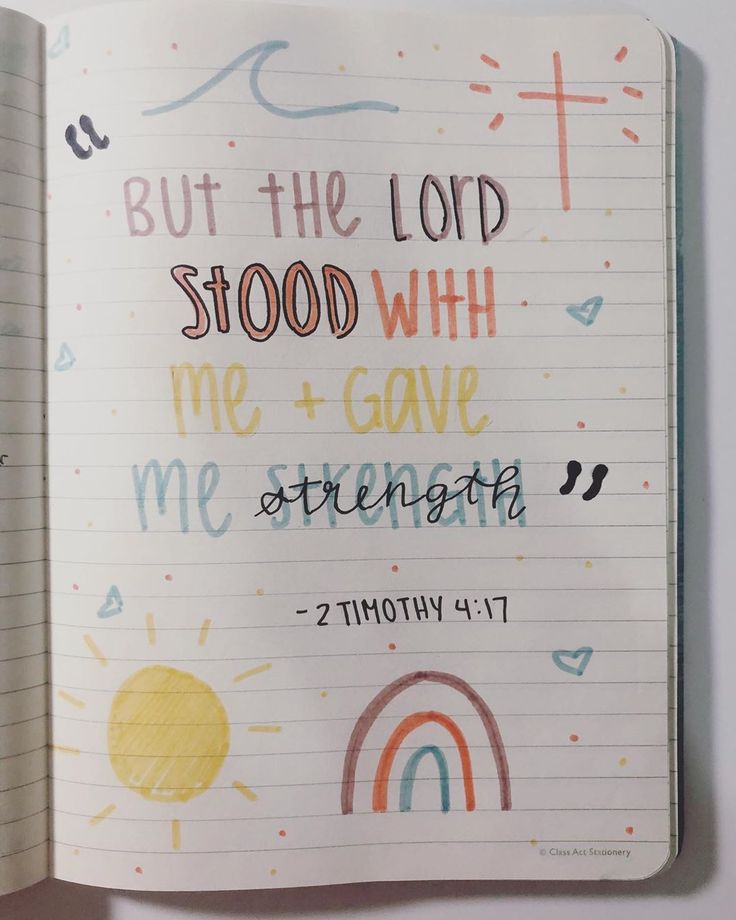 “BUT THE LORD
STOOD WITH
Me + Gave
Me STRENGTH strength ”
- 2 TIMOTHY 4:17
© Class Act Stationery